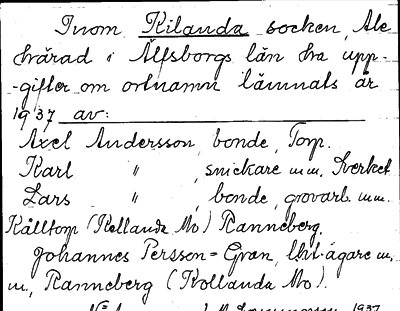 Inom Kilanda socken, Ale
härad i Älfsborgs län ha upp-
-gifter om ortnamn lämnats år
1937 av:
Axel Andersson, bonde, Torp.
Karl " , snickare m.m., Sverket
Lars " , bonde, grovarb. m.m.
Kålltorp (Kollanda Mo) Ranneberg.
Johannes Persson-Gran, ägare m.
m., Ranneberg (Kollanda Mo).
1937